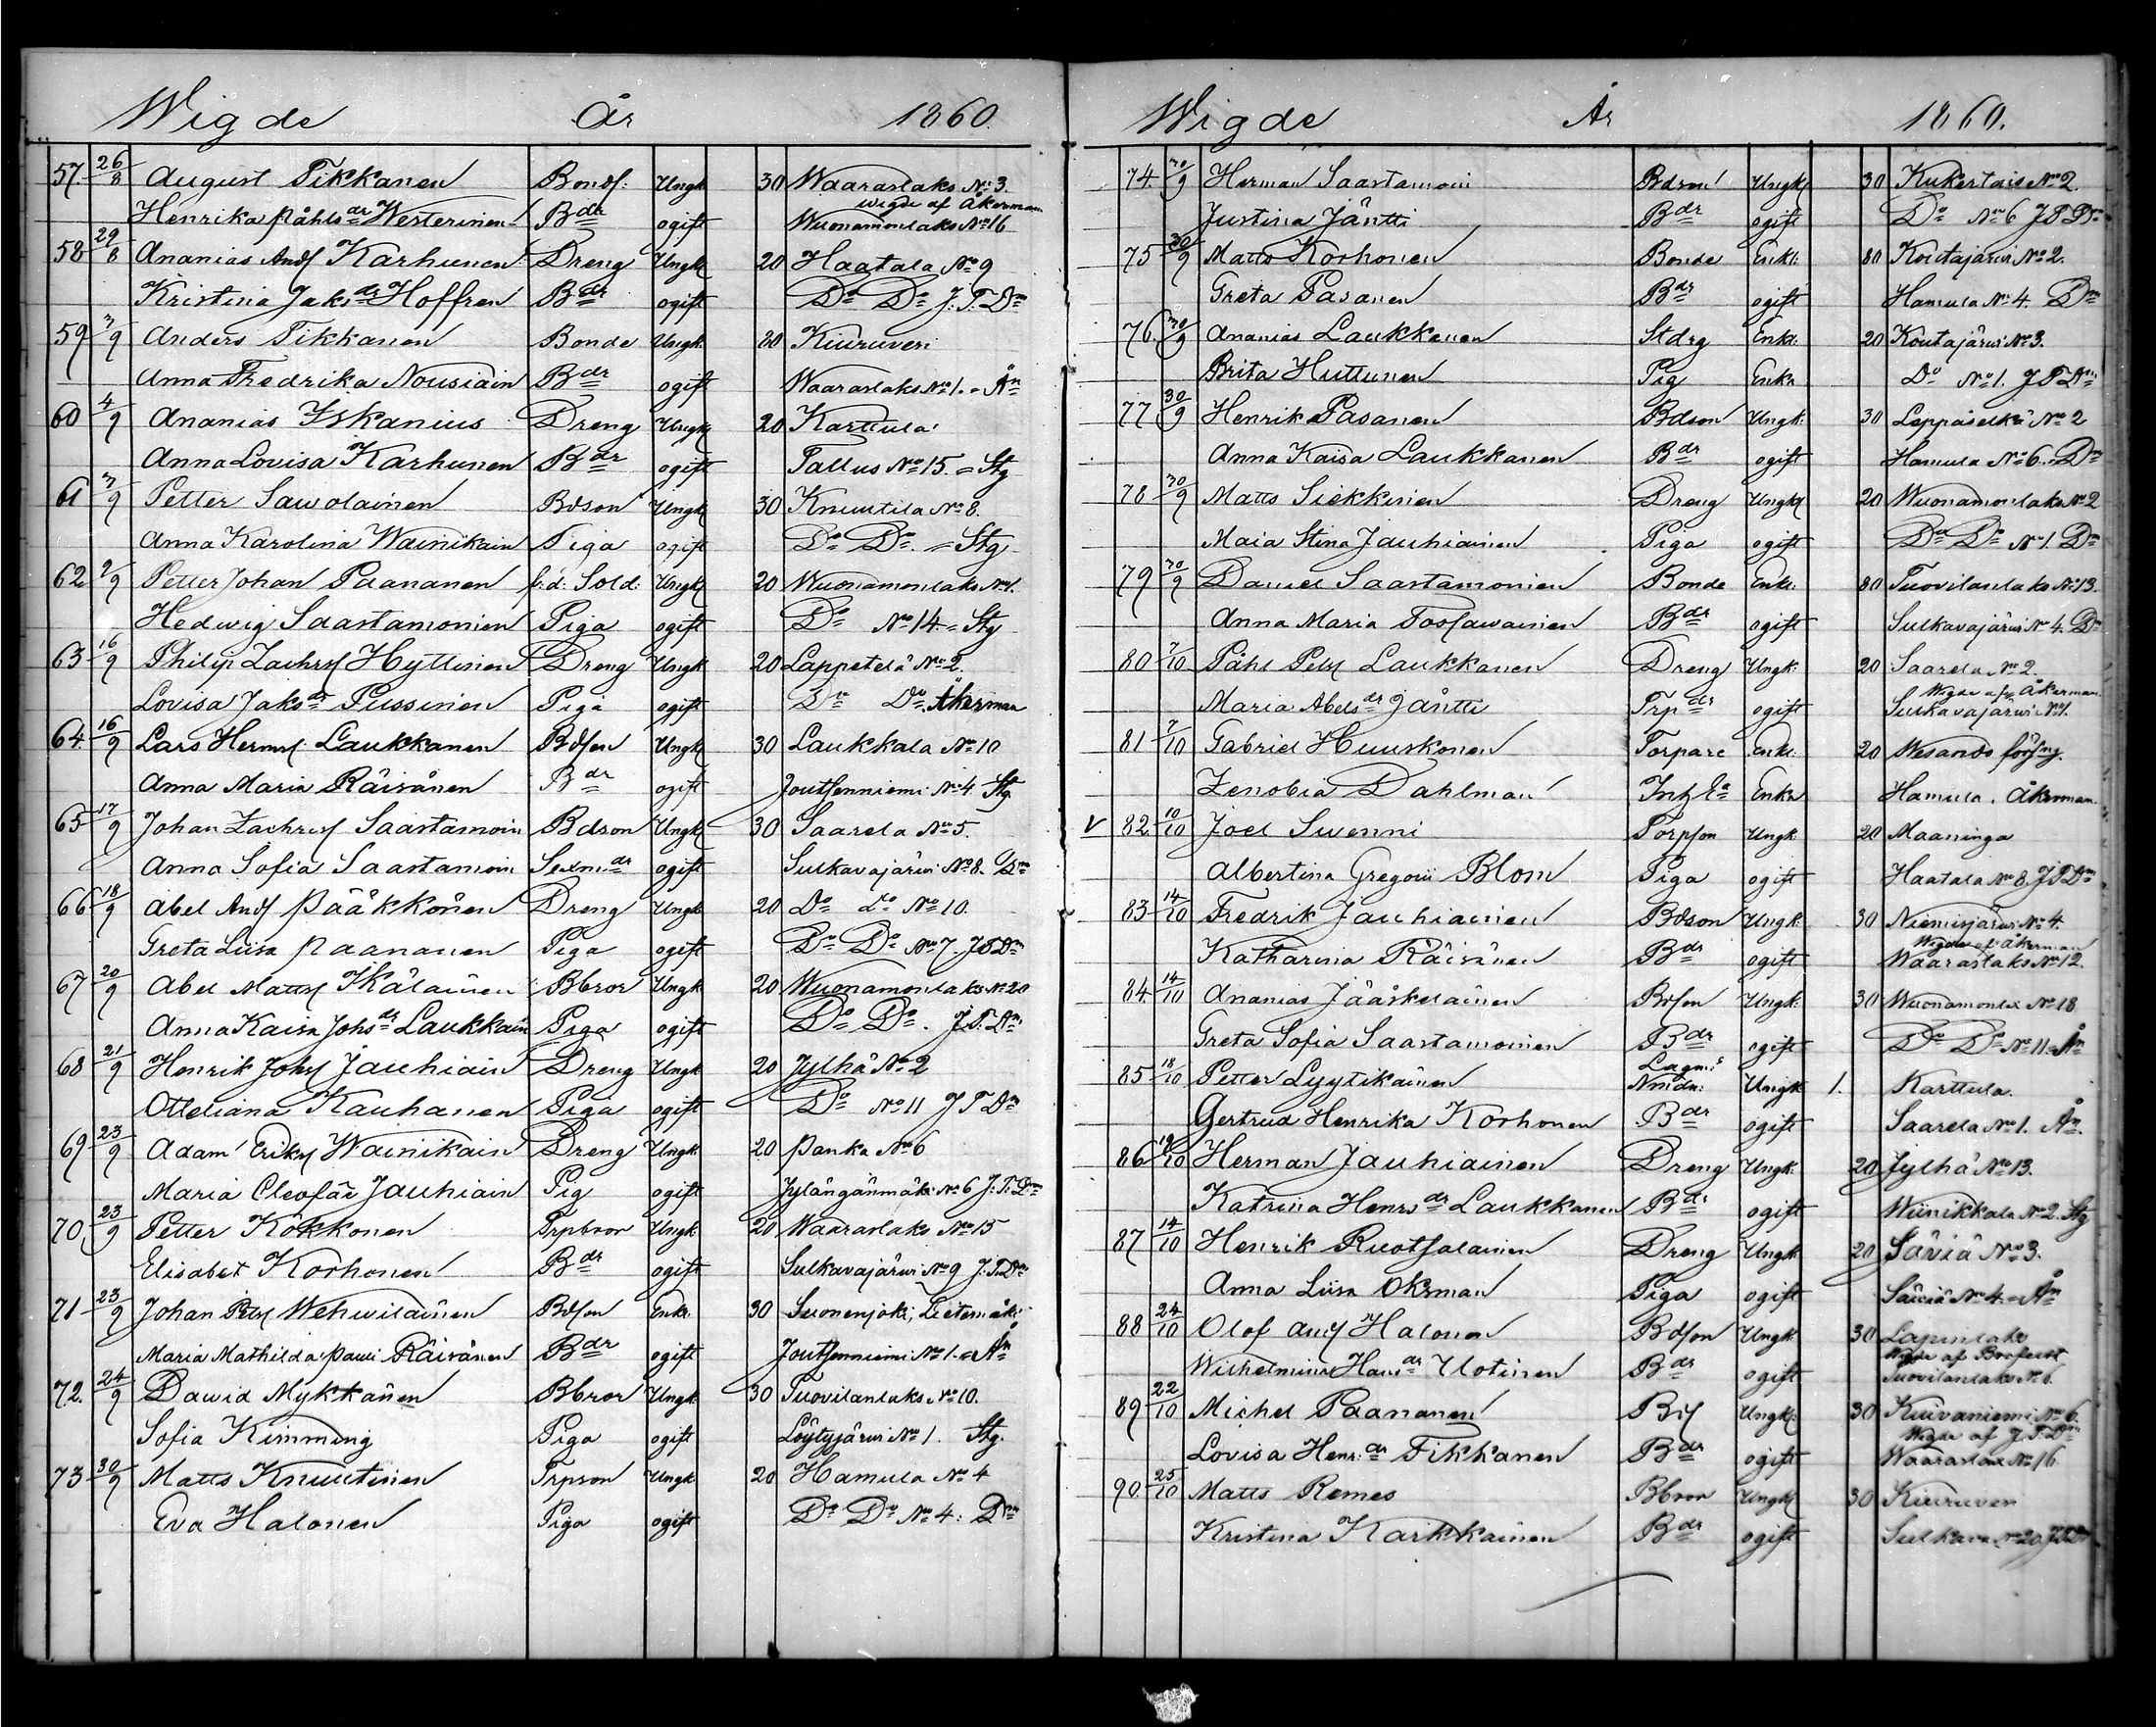 Wigde År 1860.
57. 26/8 August Tikkanen Bonds: Ungk 30 Waaraslaks No 3.
wigde af Åkerman
Henrika Påhlsdr Westerinen Bdr ogift Wuonamonlaks No 16
58 29/8 Ananias Ands Karhunen Dreng Ungk 20 Haatala No 9
Kristina Jaksdr Hoffren Bdr ogift Do Do J. T. Dm
59 3/9 Anders Tikkanen Bonde Ungk. 80 Kiuruvesi
Anna Fredrika Nousiain Bdr ogift Waaraslaks No 1. = Åm
60 4/9 Ananias Iskanius Dreng Ungk 20 Karttula
Anna Lovisa Karhunen Bdr ogift Tallus No 15. = Stg
61 7/9 Petter Sawolainen Bdson Ungk 30 Knuutila No 8.
Anna Karolina Wainikain Piga ogift Do Do. = Stg
62 2/9 Petter Johan Paananen f: d: Sold: Ungk 20 Wuonamonlaks No 1.
Hedwig Saastamonien Piga ogift Do No 14. = Stg
63 16/9 Philip Zachrs Hyttinen Dreng Ungk 20 Lappetelä No 2.
Lovisa Jaksdr Pussinen Piga ogift Do Do. Åkerman
64 16/9 Lars Herms. Laukkanen Bdson Ungk 30 Laukkala No 10
Anna Maria Räisänen Bdr ogift Joutsenniemi No 4 Stg
65 17/9 Johan Zachrs Saastamoin Bdson Ungk 30 Saarela No 5.
Anna Sofia Saastamoin Sexmdr ogift Sulkavajärwi No 8. Dm
66 18/9 Abel Ands Pääkkönen Dreng Ungk 20 Do do No 10.
Greta Liisa Paananen Piga ogift Do Do No 7. J T Dm
67 20/9 Abel Matts Ikäläinen Bbror Ungk 20 Wuonamonlaks No 20
Anna Kaisa Johsdr Laukkain Piga ogift Do Do. J. T. Dm
68 21/9 Henrik Johs Jauhiain Dreng Ungk 20 Jylhä No 2
Otteliana Kauhanen Piga ogift Do No 11 J T Dm
69 23/9 Adam Eriks Wainikain Dreng Ungk 20 Panka No 6
Maria Cleofäe Jauhiain Pig ogift Jylängänmäki No 6 J. T. Dm
70. 23/9 Petter Kökkonen Trpbror Ungk 20 Waaraslaks No 15
Elisabet Korhonen Bdr ogift Sulkavajärwi No 9 J. T. Dm
71 23/9 Johan Pets Wehwiläinen Bdson Enkl. 30 Suonenjoki, Lietemäki
Maria Mathilda Paul: Räisänen Bdr ogift Joutsenniemi No 1. = Åm
72. 24/9 Dawid Mykkänen Bbror Ungk 30 Tuovilanlaks No 10.
Sofia Kimming Piga ogift Löytyjärwi No 1. Stg.
73 30/9 Matts Knuutinen Trpson Ungk 20 Hamula No 4
Eva Halonen Piga ogift Do Do No 4: Dm
Wigde År 1860.
74. 30/9 Herman Saastamoin Bdson Ungk 30 Kukertais No 2.
Justina Jäntti Bdr ogift Do No 6 J T Dm
75 30/9 Matts Korhonen Bonde Enkl: 80 Koutajärwi No 2.
Greta Pasanen Bdr ogift Hamula No 4. Dm
76. 30/9 Ananias Laukkanen Stdrg Enkl: 20 Koutajärwi No 3.
Brita Huttunen Pig Enka Do No 1. J T Dm
77 30/9 Henrik Pasanen Bdson Ungk: 30 Leppäselkä No 2
Anna Kaisa Laukkanen Bdr ogift Hamula No 6. = Dm
78 30/9 Matts Siekkinen Dreng Ungk 20 Wuonamonlaks No 2
Maia Stina Jauhiainen Piga ogift Do Do No 1. Dm
79 30/9 Daniel Saastamonien Bonde Enkl: 80 Tuovilanlaks No 13.
Anna Maria Tossawainen Bdr ogift Sulkavajärwi No 4. Dm
80 7/10 Påhl Pets Laukkanen Dreng Ungk: 20 Saarela No 2.
Wigde af Åkerman
Maria Abelsdr Jäntti Trpdr ogift Sulkavajärwi No 1.
81 7/10 Gabriel Huuskonen Torpare Enkl: 20 Wesando förs:mg.
Zenobia Dahlman Inhla Enka Hamula. Åkerman
V 82 10/10 Joel Swenni Torpson Ungk: 20 Maaninga
Albertina Gregorii Blom Piga ogift Haatala No 8. J T Dm
83 14/10 Fredrik Jauhiainen Bdson Ungk: 30 Niemisjärwi No 4.
Wigde af Åkerman
Katharina Räisänen Bdr ogift Waaraslaks No 12.
84 14/10 Ananias Jääskeläinen Bdson Ungk: 30 Wuonamonlx No 18
Greta Sofia Saastamoinen Bdr ogift Do Do No 11 = Åm
85 18/10 Petter Lyytikäinen Lagm: Nmdn: Ungk 1. Karttula.
Gertrud Henrika Korhonen Bdr ogift Saarela No 1. Åm.
86 19/10 Herman Jauhiainen Dreng Ungk: 20 Jylhä No 13.
Katrina Henrsdr Laukkanen Bdr ogift Wiinikkala No 2. Stg
87 14/10 Henrik Ruotsalainen Dreng Ungk: 20 Säviä No 3.
Anna Liisa Oksman Piga ogift Säviä No 4. = Åm
88 24/10 Olof Ands Halonen Bdson Ungk: 30 Lapinlaks
Wigde af Brofeldt
Wilhelmina Hansdr Uotinen Bdr ogift Tuovilanlaks No 6.
89 22/10 Michel Paananen Bds Ungk: 30 Kuivaniemi No 6.
Wigde af J T Dm
Lovisa Henr:dr Tikkanen Bdr ogift Waaraslax No 16.
90. 25/10 Matts Remes Bbror Ungk 30 Kiuruves
Kristina Karkkainen Bdr ogift Sulkava No 20 J T Dm